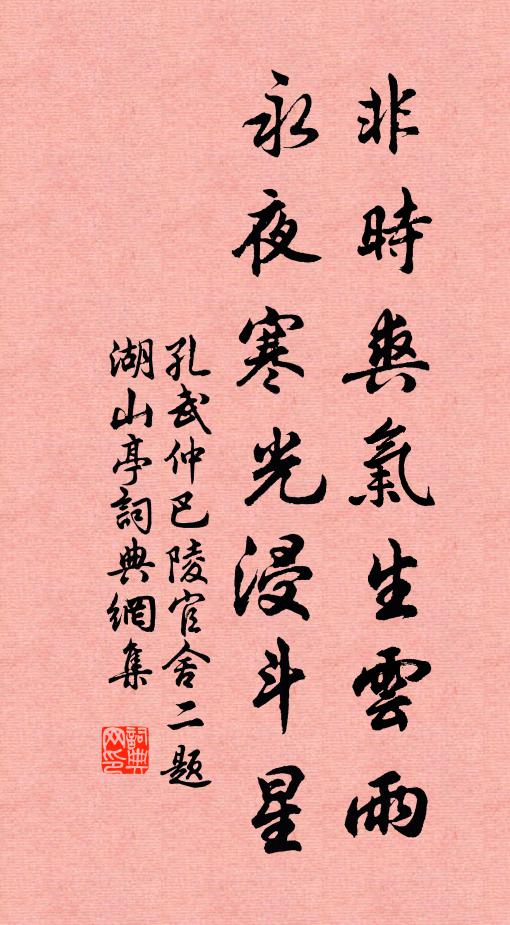 非時爽氣生雲雨
永夜寒光浸斗星
孔武仲巴陵官舍二題
湖山亭詞典網集
詞典
网印